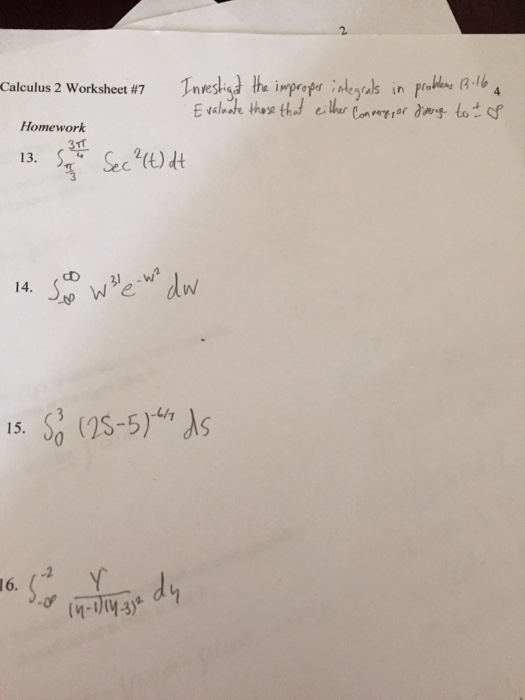 2
Calculus 2 Worksheet #7
Investigat the improper integrals in problems 13-16
4
Evaluate those that either converge or diverge to ± ∞
Homework
13. ∫_{π/3}^{3π/4} Sec²(t) dt
14. ∫_{-∞}^{∞} w³¹ e^{-w²} dw
15. ∫_0^3 (2S-5)^{-6/7} dS
16. ∫_{-∞}^{-2} y/((y-1)(y-3)²) dy